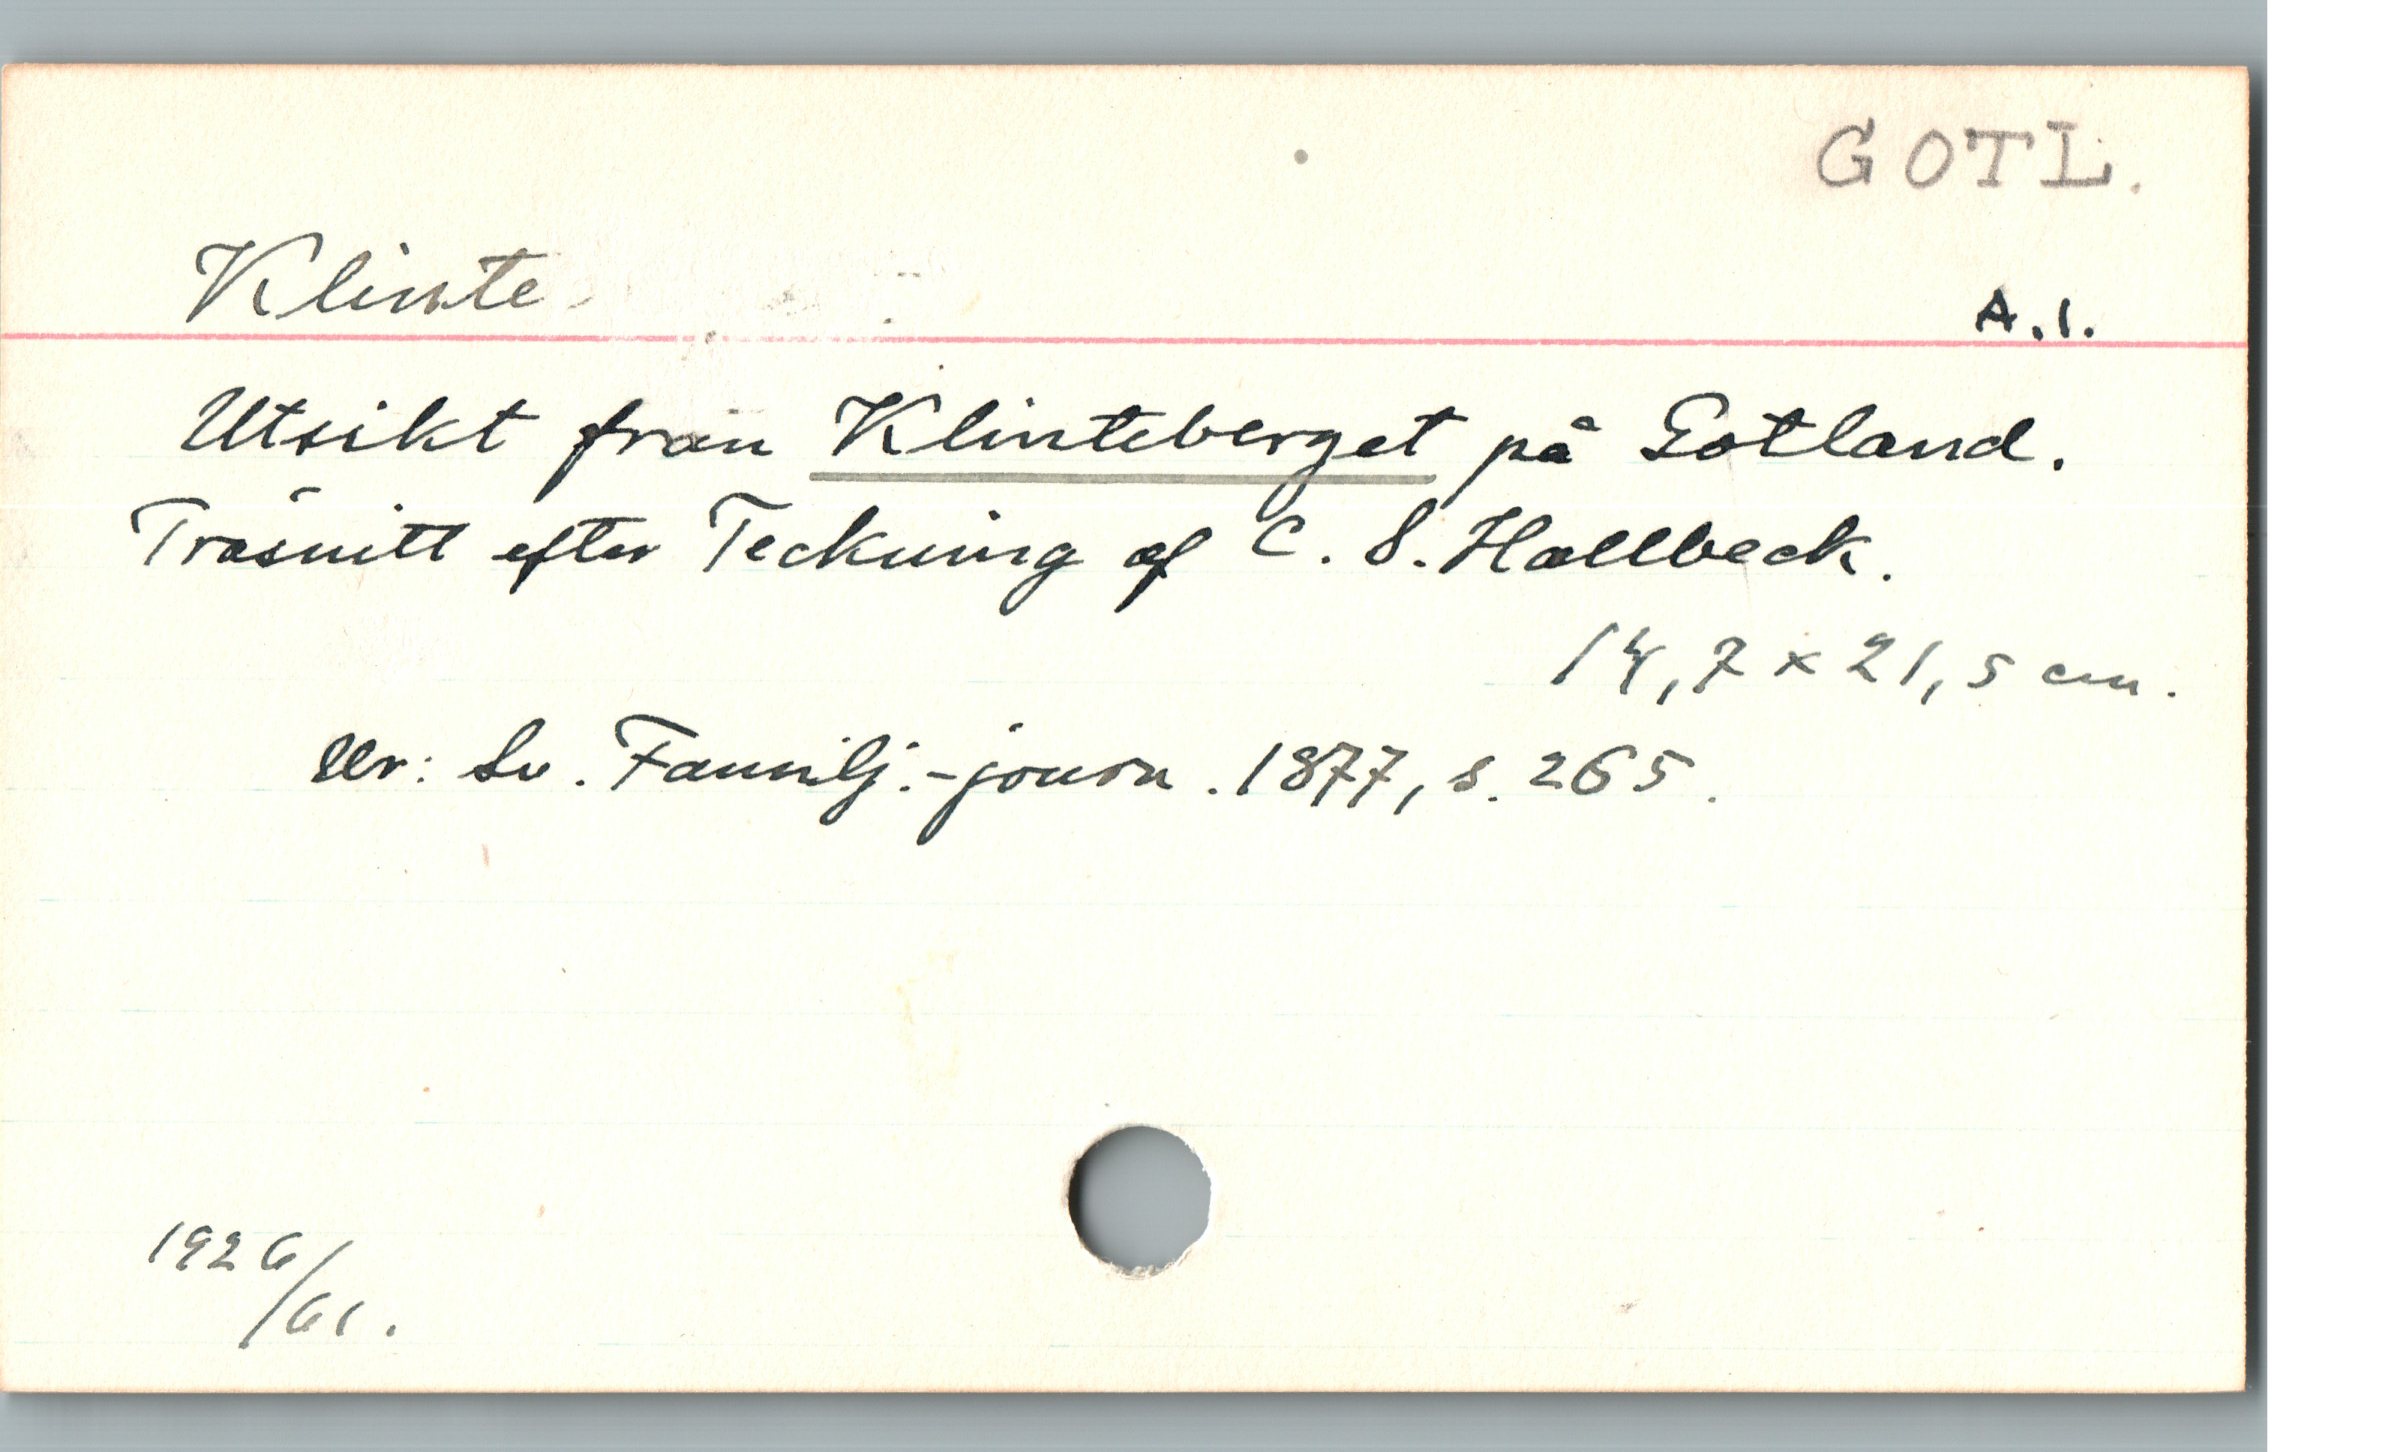 GOTL.
Klinte
A.1.
Utsikt från Klinteberget på Gotland.
Träsnitt efter Teckning af C. S. Hallbeck.
14,7 × 21,5 cm.
Ur: Sv. Familj.-journ. 1877, s. 265.
1926/61.